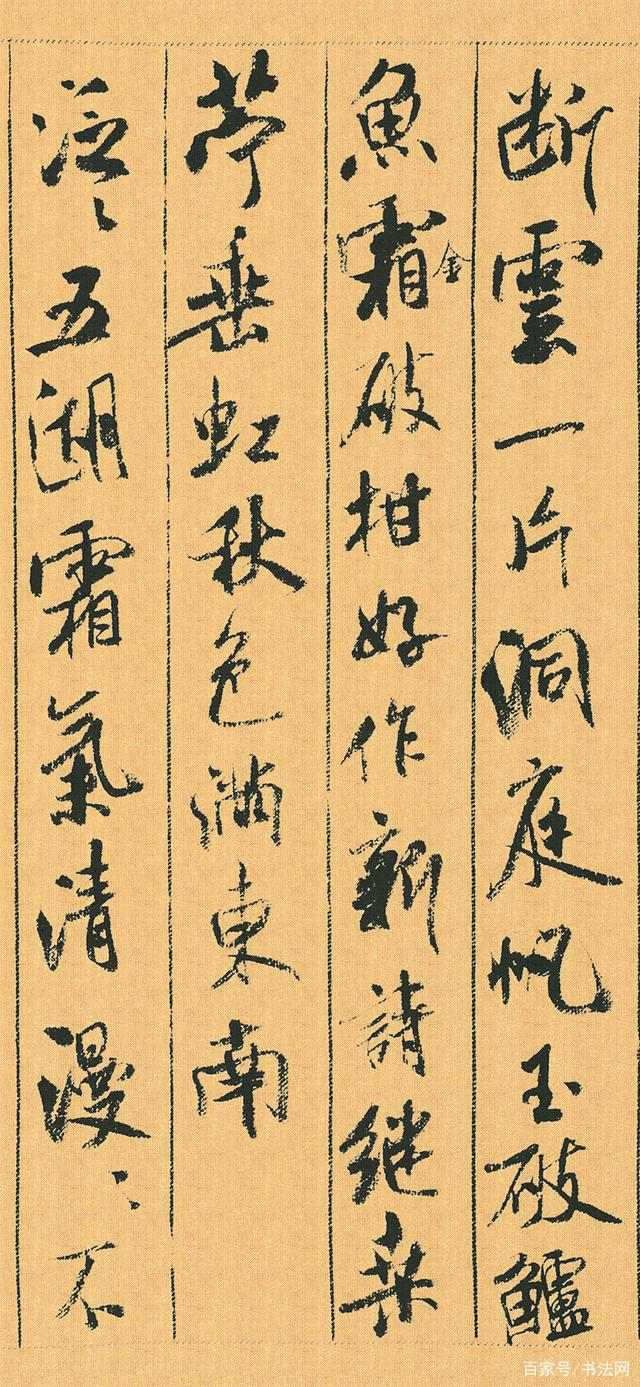 断雲一片洞庭帆玉破鱸
魚霜金破柑好作新詩継桑
苧垂虹秋色滿東南
泛〻五湖霜氣清漫〻不
百家号/书法网